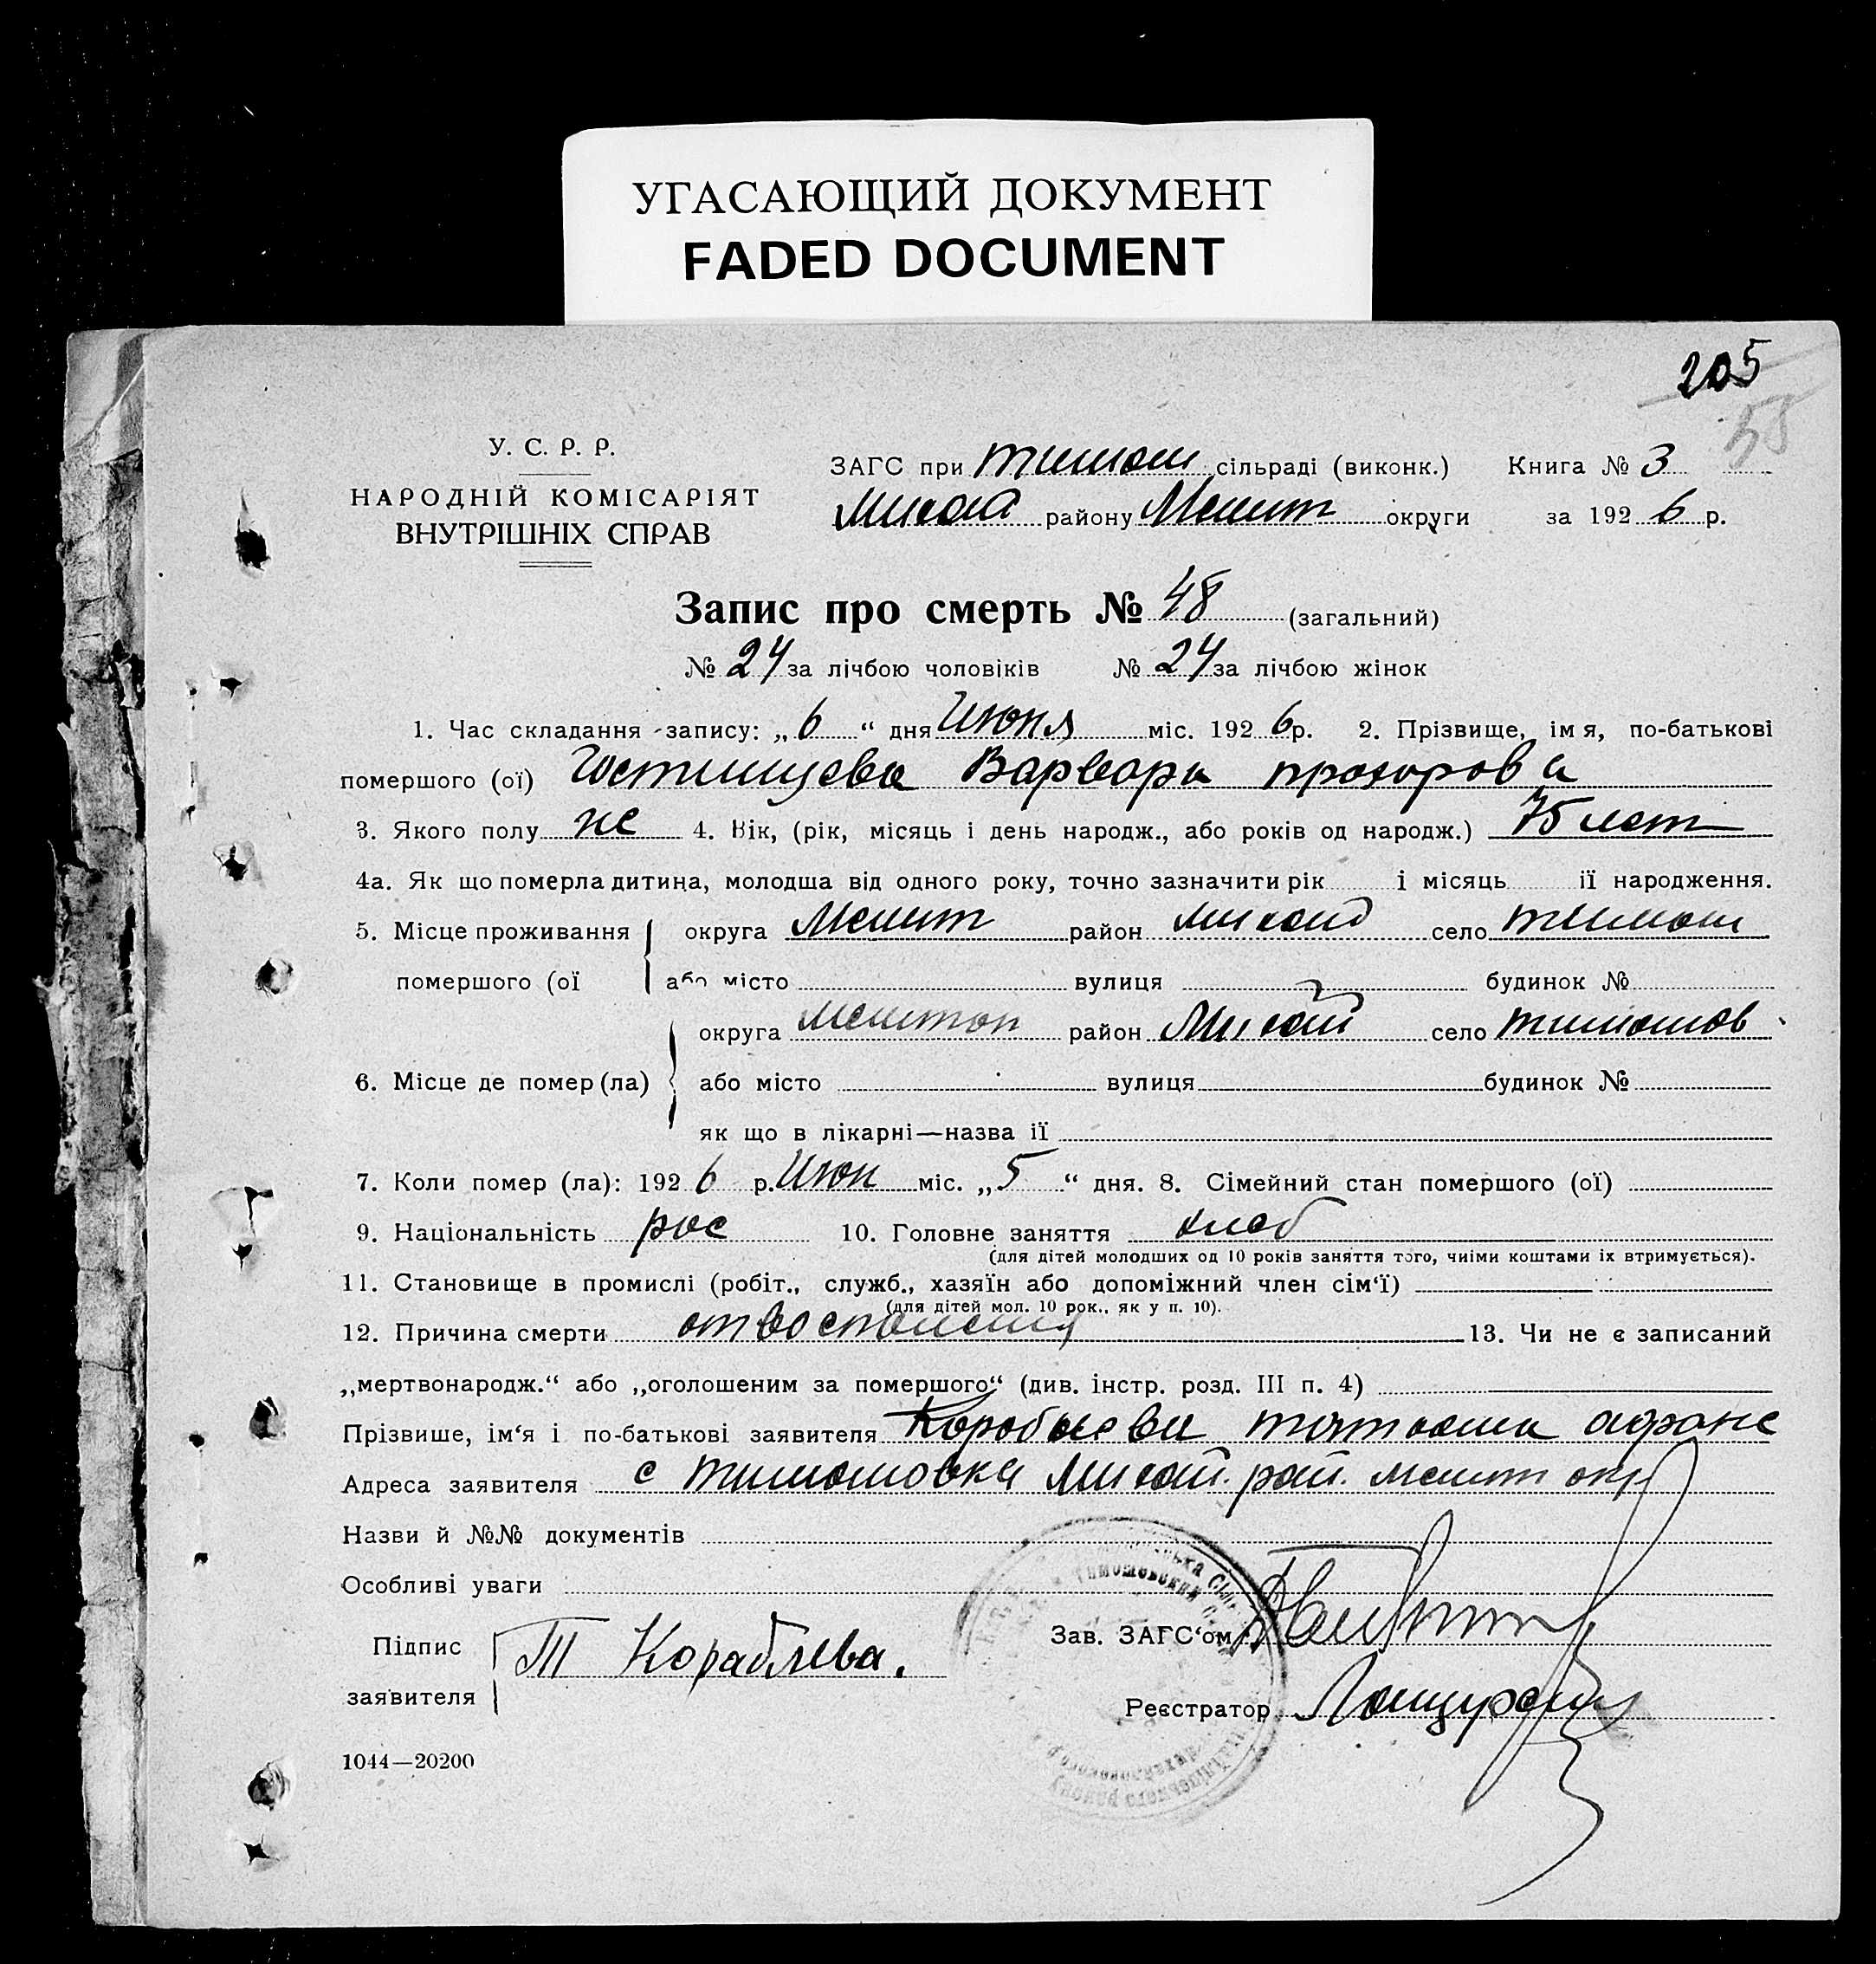 УГАСАЮЩИЙ ДОКУМЕНТ
FADED DOCUMENT
205
55
У. С. Р. Р.
НАРОДНІЙ КОМІСАРІЯТ
ВНУТРІШНІХ СПРАВ
ЗАГС при тимош сільраді (виконк.) Книга № 3
району Мелит округи за 192 6 р.
Запис про смерть № 48 (загальний)
№ 24 за лічбою чоловіків № 24 за лічбою жінок
1. Час складання запису: „ 6 “ дня Июня міс. 192 6 р. 2. Прізвище, імя, по-батькові
помершого (ої) Гостищева Варвара прохорова
3. Якого полу же 4. Вік, (рік, місяць і день народж., або років од народж.) 75 лет
4а. Як що померла дитина, молодша від одного року, точно зазначити рік і місяць її народження.
5. Місце проживання округа Мелит район михай село тимош
помершого (ої або місто вулиця будинок №
округа мелитоп район Михай село тимошов
6. Місце де помер (ла) або місто вулиця будинок №
як що в лікарні—назва її
7. Коли помер (ла): 192 6 р. Июн міс. „ 5 “ дня. 8. Сімейний стан помершого (ої)
9. Національність рос 10. Головне заняття хлеб
(для дітей молодших од 10 років заняття того, чиїми коштами їх втримується).
11. Становище в промислі (робіт., служб., хазяїн або допоміжний член сім‘ї)
(для дітей мол. 10 рок., як у п. 10).
12. Причина смерти от воспаления 13. Чи не є записаний
„мертвонародж.“ або „оголошеним за помершого“ (див. інстр. розд. III п. 4)
Прізвише, ім‘я і по-батькові заявителя татьяна
Адреса заявителя с тимошовка Михай. рай. мелит окр
Назви й №№ документів
Особливі уваги
Зав. ЗАГС‘ом
Підпис
заявителя Т Кораблева.
Реєстратор
1044—20200